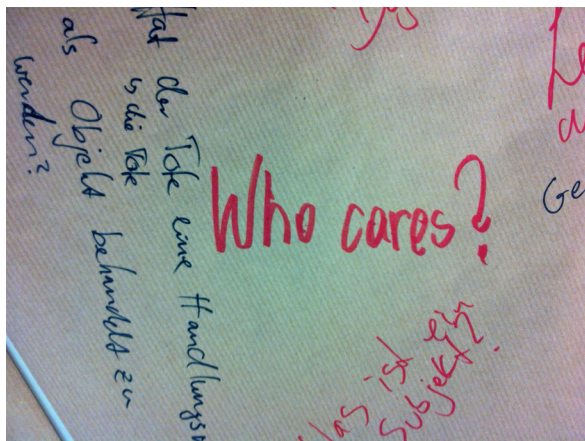 Hat der Tote eine Handlungs
die Tote
als Objekt behandelt zu
werden?
Who cares?
Was ist ein
Subjekt?
Ge